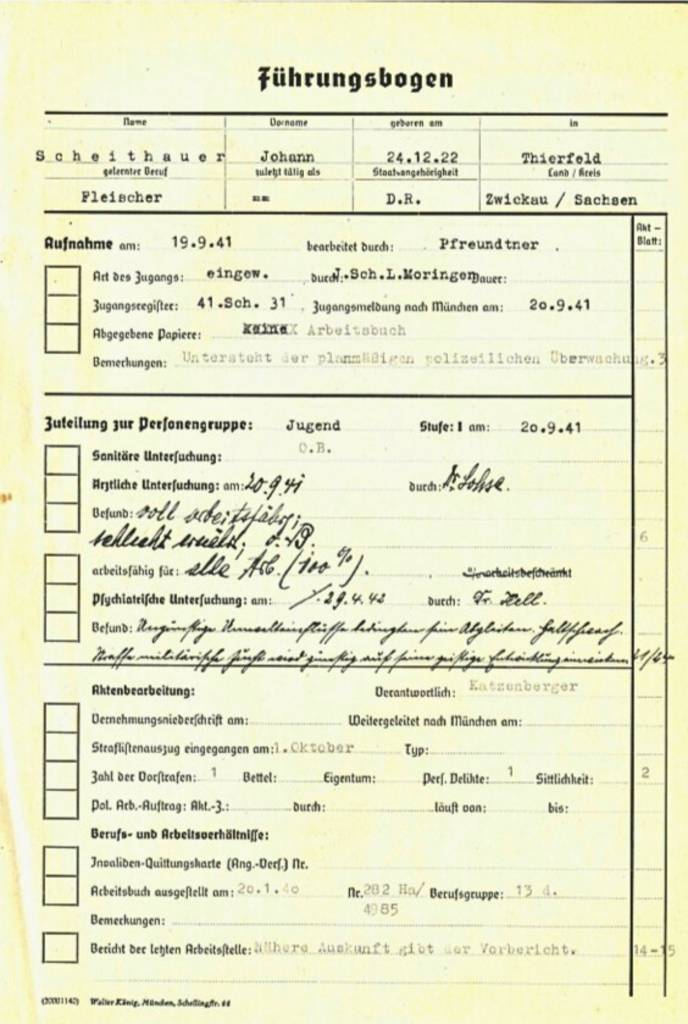 Führungsbogen
Name Vorname geboren am in
Scheithauer Johann 24.12.22 Thierfeld
gelernter Beruf zuletzt tätig als Staatsangehörigkeit Land / Kreis
Fleischer == D.R. Zwickau / Sachsen
Akt-Blatt:
Aufnahme am: 19.9.41 bearbeitet durch: Pfreundtner .
Art des Zugangs: eingew. durch: J.Sch.L.Moringen Dauer:
Zugangsregister: 41.Sch. 31 . Zugangsmeldung nach München am: 20.9.41
Abgegebene Papiere: Keine Arbeitsbuch
Bemerkungen: Untersteht der planmäßigen polizeilichen Überwachung. 3
Zuteilung zur Personengruppe: Jugend Stufe: I am: 20.9.41
Sanitäre Untersuchung: O.B.
Ärztliche Untersuchung: am: 20.9.41 durch: Dr. Lohse.
Befund: voll arbeitsfähig;
schlecht ernährt; o. B. 6
arbeitsfähig für: alle Arb. (100 %). % arbeitsbeschränkt
Psychiatrische Untersuchung: am: 29.4.42 durch: Dr. Hell.
Befund: Ungünstige Umwelteinflüsse bedingten sein Abgleiten. Haltschwach.
Straffe militärische Zucht wird günstig auf seine geistige Entwicklung einwirken.
Aktenbearbeitung: Verantwortlich: Katzenberger
Vernehmungsniederschrift am: Weitergeleitet nach München am:
Straflistenauszug eingegangen am: 1.Oktober Typ:
Zahl der Vorstrafen: 1 Bettel: Eigentum: Pers. Delikte: 1 Sittlichkeit: 2
Pol. Arb.-Auftrag: Akt.-Z.: durch: läuft von: bis:
Berufs- und Arbeitsverhältnisse:
Invaliden-Quittungskarte (Ang.-Vers.) Nr.
Arbeitsbuch ausgestellt am: 20.1.40 Nr. 282 Ha/ Berufsgruppe: 13 d.
4985
Bemerkungen:
Bericht der letzten Arbeitsstelle: Nähere Auskunft gibt der Vorbericht. 14-15
(20001142) Walter König, München, Schellingstr. 44